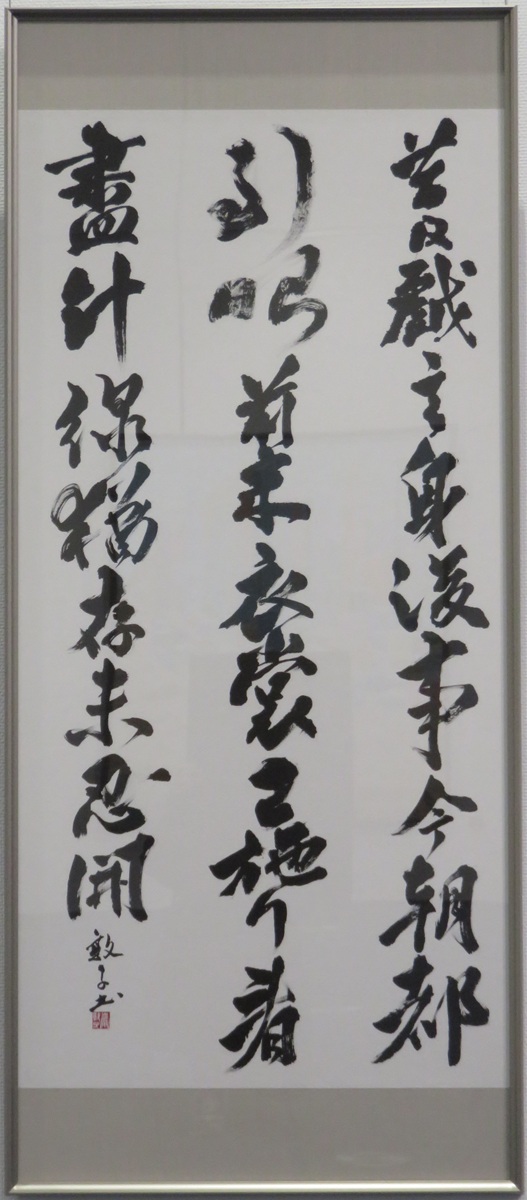 昔日戲言身後事今朝都
到眼前來衣裳已施行看
盡針線猶存未忍開
敦子書